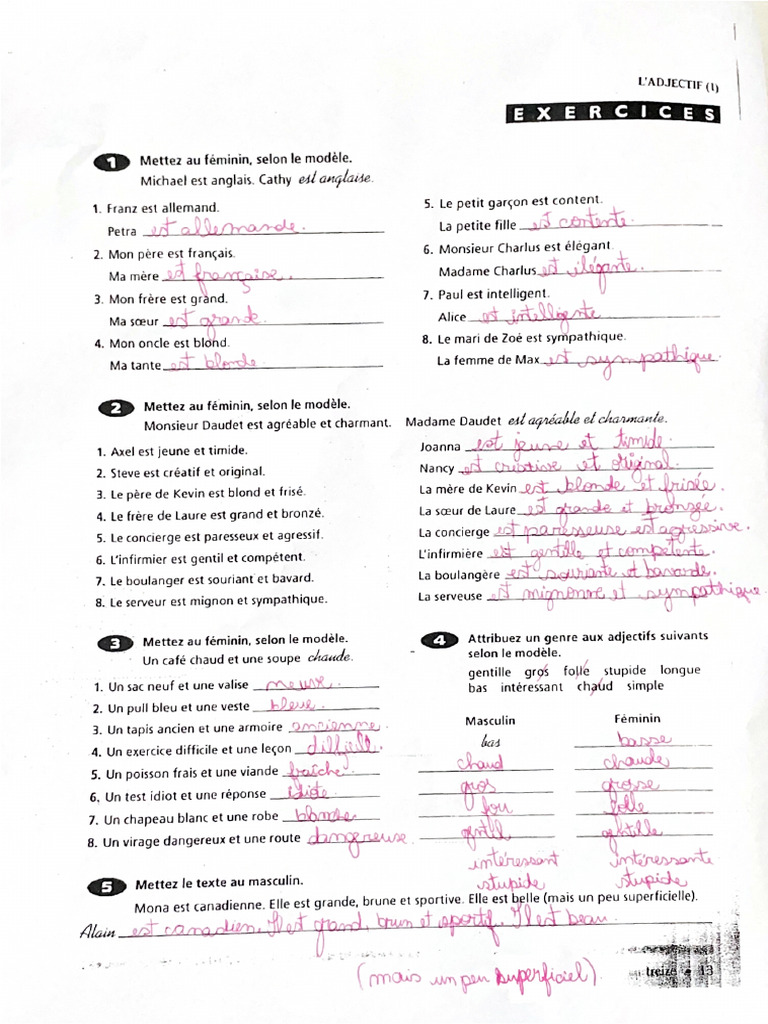 L'ADJECTIF (1)
EXERCICES
1 Mettez au féminin, selon le modèle.
Michael est anglais. Cathy est anglaise.
1. Franz est allemand.
Petra est allemande.
2. Mon père est français.
Ma mère est française.
3. Mon frère est grand.
Ma sœur est grande.
4. Mon oncle est blond.
Ma tante est blonde
5. Le petit garçon est content.
La petite fille est contente.
6. Monsieur Charlus est élégant.
Madame Charlus est élégante.
7. Paul est intelligent.
Alice est intelligente
8. Le mari de Zoé est sympathique.
La femme de Max est sympathique.
2 Mettez au féminin, selon le modèle.
Monsieur Daudet est agréable et charmant. Madame Daudet est agréable et charmante.
1. Axel est jeune et timide. Joanna est jeune et timide.
2. Steve est créatif et original. Nancy est créative et original.
3. Le père de Kevin est blond et frisé. La mère de Kevin est blonde et frisée.
4. Le frère de Laure est grand et bronzé. La sœur de Laure est grande et bronzée.
5. Le concierge est paresseux et agressif. La concierge est paresseuse est agressive.
6. L'infirmier est gentil et compétent. L'infirmière est gentille et compétente.
7. Le boulanger est souriant et bavard. La boulangère est souriante et bavarde.
8. Le serveur est mignon et sympathique. La serveuse est mignonne et sympathique.
3 Mettez au féminin, selon le modèle.
Un café chaud et une soupe chaude.
1. Un sac neuf et une valise neuve.
2. Un pull bleu et une veste bleue.
3. Un tapis ancien et une armoire ancienne.
4. Un exercice difficile et une leçon difficile.
5. Un poisson frais et une viande fraîche
6. Un test idiot et une réponse idiote.
7. Un chapeau blanc et une robe blanche
8. Un virage dangereux et une route dangereuse.
4 Attribuez un genre aux adjectifs suivants
selon le modèle.
gentille gros folle stupide longue
bas intéressant chaud simple
Masculin Féminin
bas basse
chaud chaude
gros grosse
fou folle
gentil gentille
intéressant intéressante
stupide stupide
5 Mettez le texte au masculin.
Mona est canadienne. Elle est grande, brune et sportive. Elle est belle (mais un peu superficielle).
Alain est canadien. Il est grand, brun et sportif. Il est beau.
(mais un peu superficiel).
treize • 13